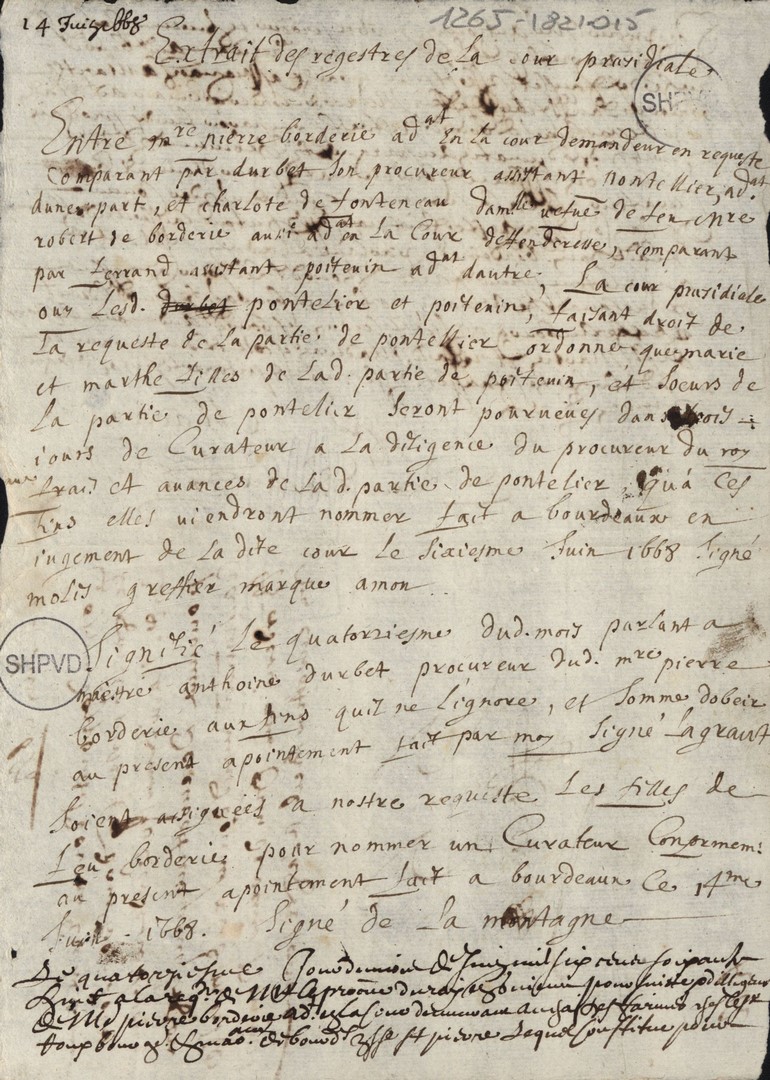 14 Juin 1668
1265-1821-015
Extrait des registres de la cour presidiale
SHPVD
Entre mre pierre borderie adat en la cour demandeur en requeste
comparant par durbet son procureur assistant pontellier adat
dune part, et charlote de fonteneau damlle vefue de feu mre
robert de borderie aussi adat en la Cour deffenderesse, comparant
par ferrand assistant poiteuin adat dautre, La cour presidiale
ouy Lesd. durbet pontelier et poiteuin, faisant droit de
la requeste de la partie de pontellier ordonne que marie
et marthe filles de lad. partie de poiteuin, et soeurs de
la partie de pontelier seront pourueues dans trois
iours de Curateur a la diligence du procureur du roy
frais et auances de lad. partie de pontelier qua ces
fins elles uiendront nommer fait a bourdeaux en
iugement de la dite cour le sixiesme Juin 1668 signé
molis greffier marque amon
SHPVD
Signifié le quatorziesme dud. mois parlant a
maistre anthoine durbet procureur dud. mre pierre
borderie aux fins quil ne lignore, et somme dobeir
au present apointement fait par moy signé Lagraut
Soient assignées a nostre requeste les filles de
feu borderie pour nommer un Curateur Conformem.
au present apointement fait a bourdeaux ce 14me
Juin 1668. Signé de la montagne
Le quatorziesme Jour du mois de Juin mil six cens soixante
huict a la reqte de Mr le procur du roy poursuitte et dilligence
de Me pierre borderie ad. en la cour
de bourdx psse st pierre Lequel constitue pour